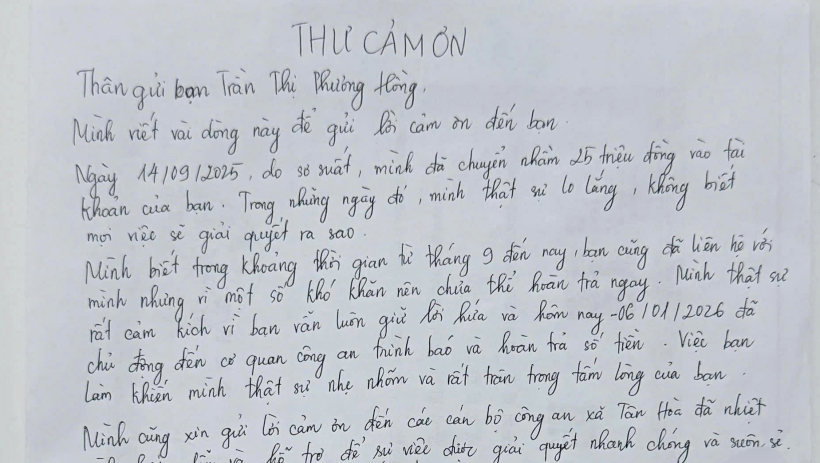 THƯ CẢM ƠN
Thân gửi bạn Trần Thị Phương Hồng,
Mình viết vài dòng này để gửi lời cảm ơn đến bạn.
Ngày 14/09/2025, do sơ suất, mình đã chuyển nhầm 25 triệu đồng vào tài
khoản của bạn. Trong những ngày đó, mình thật sự lo lắng, không biết
mọi việc sẽ giải quyết ra sao.
Mình biết trong khoảng thời gian từ tháng 9 đến nay, bạn cũng đã liên hệ với
mình nhưng vì một số khó khăn nên chưa thể hoàn trả ngay. Mình thật sự
rất cảm kích vì bạn vẫn luôn giữ lời hứa và hôm nay - 06/01/2026 đã
chủ động đến cơ quan công an trình báo và hoàn trả số tiền. Việc bạn
làm khiến mình thật sự nhẹ nhõm và rất trân trọng tấm lòng của bạn.
Mình cũng xin gửi lời cảm ơn đến các cán bộ công an xã Tân Hòa đã nhiệt
và hỗ trợ để sự việc được giải quyết nhanh chóng và suôn sẻ.